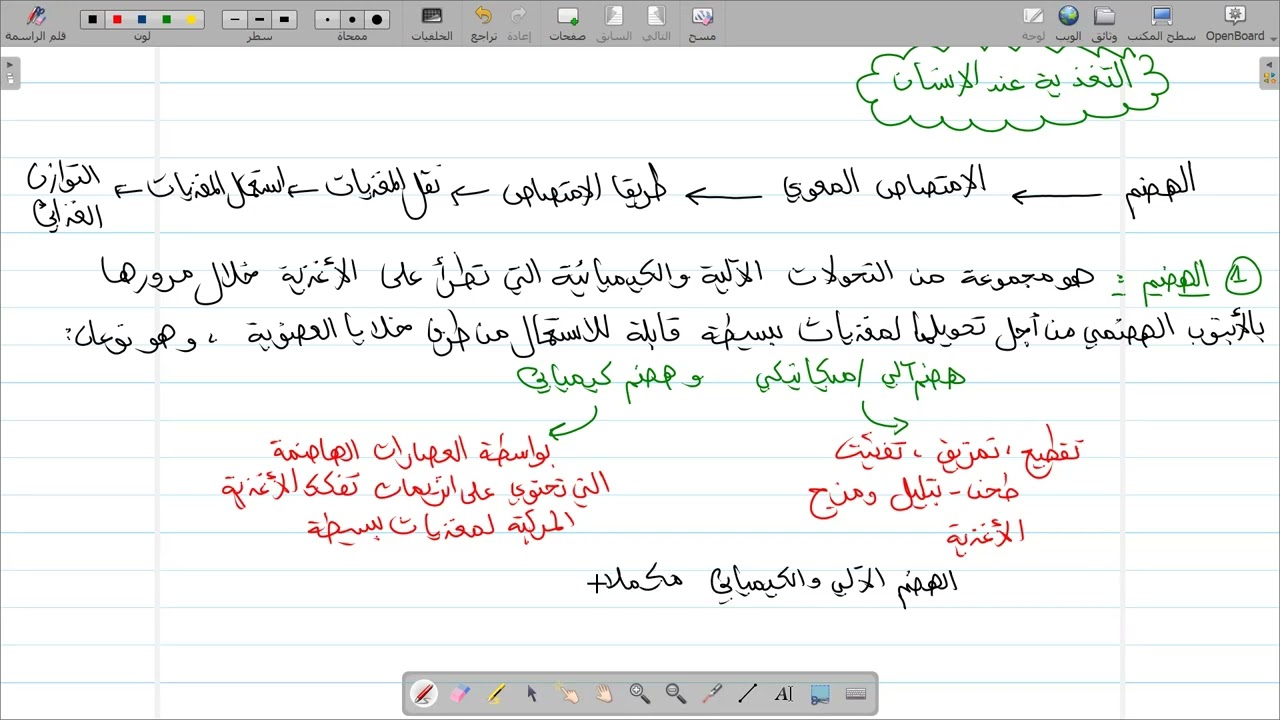 قلم الراسمة
لون
سطر
ممحاة
الخلفيات
تراجع
إعادة
صفحات
السابق
التالي
مسح
لوحة
الويب
وثائق
سطح المكتب
OpenBoard
التغذية عند الإنسان
الهضم ← الامتصاص المعوي ← طريقا الامتصاص ← نقل المغذيات ← استعمال المغذيات ← التوازن الغذائي
① الهضم : هو مجموعة من التحولات الآلية والكيميائية التي تطرأ على الأغذية خلال مرورها
بالأنبوب الهضمي من أجل تحويلها لمغذيات بسيطة قابلة للاستعمال من طرف خلايا العضوية ، وهو نوعان:
هضم آلي / ميكانيكي و هضم كيميائي
تقطيع ، تمزيق ، تفتيت
طحن - تبليل ومزج
الأغذية
بواسطة العصارات الهاضمة
التي تحتوي على انزيمات تفكك الأغذية
المركبة لمغذيات بسيطة
الهضم الآلي والكيميائي مكملا
AI